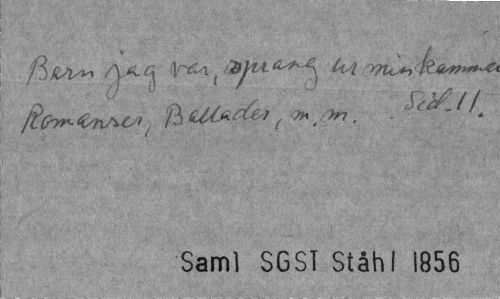 Barn jag var, sprang ur min kammar
Romanser, Ballader, m.m. Sid. 11.
Saml SGST Ståhl 1856